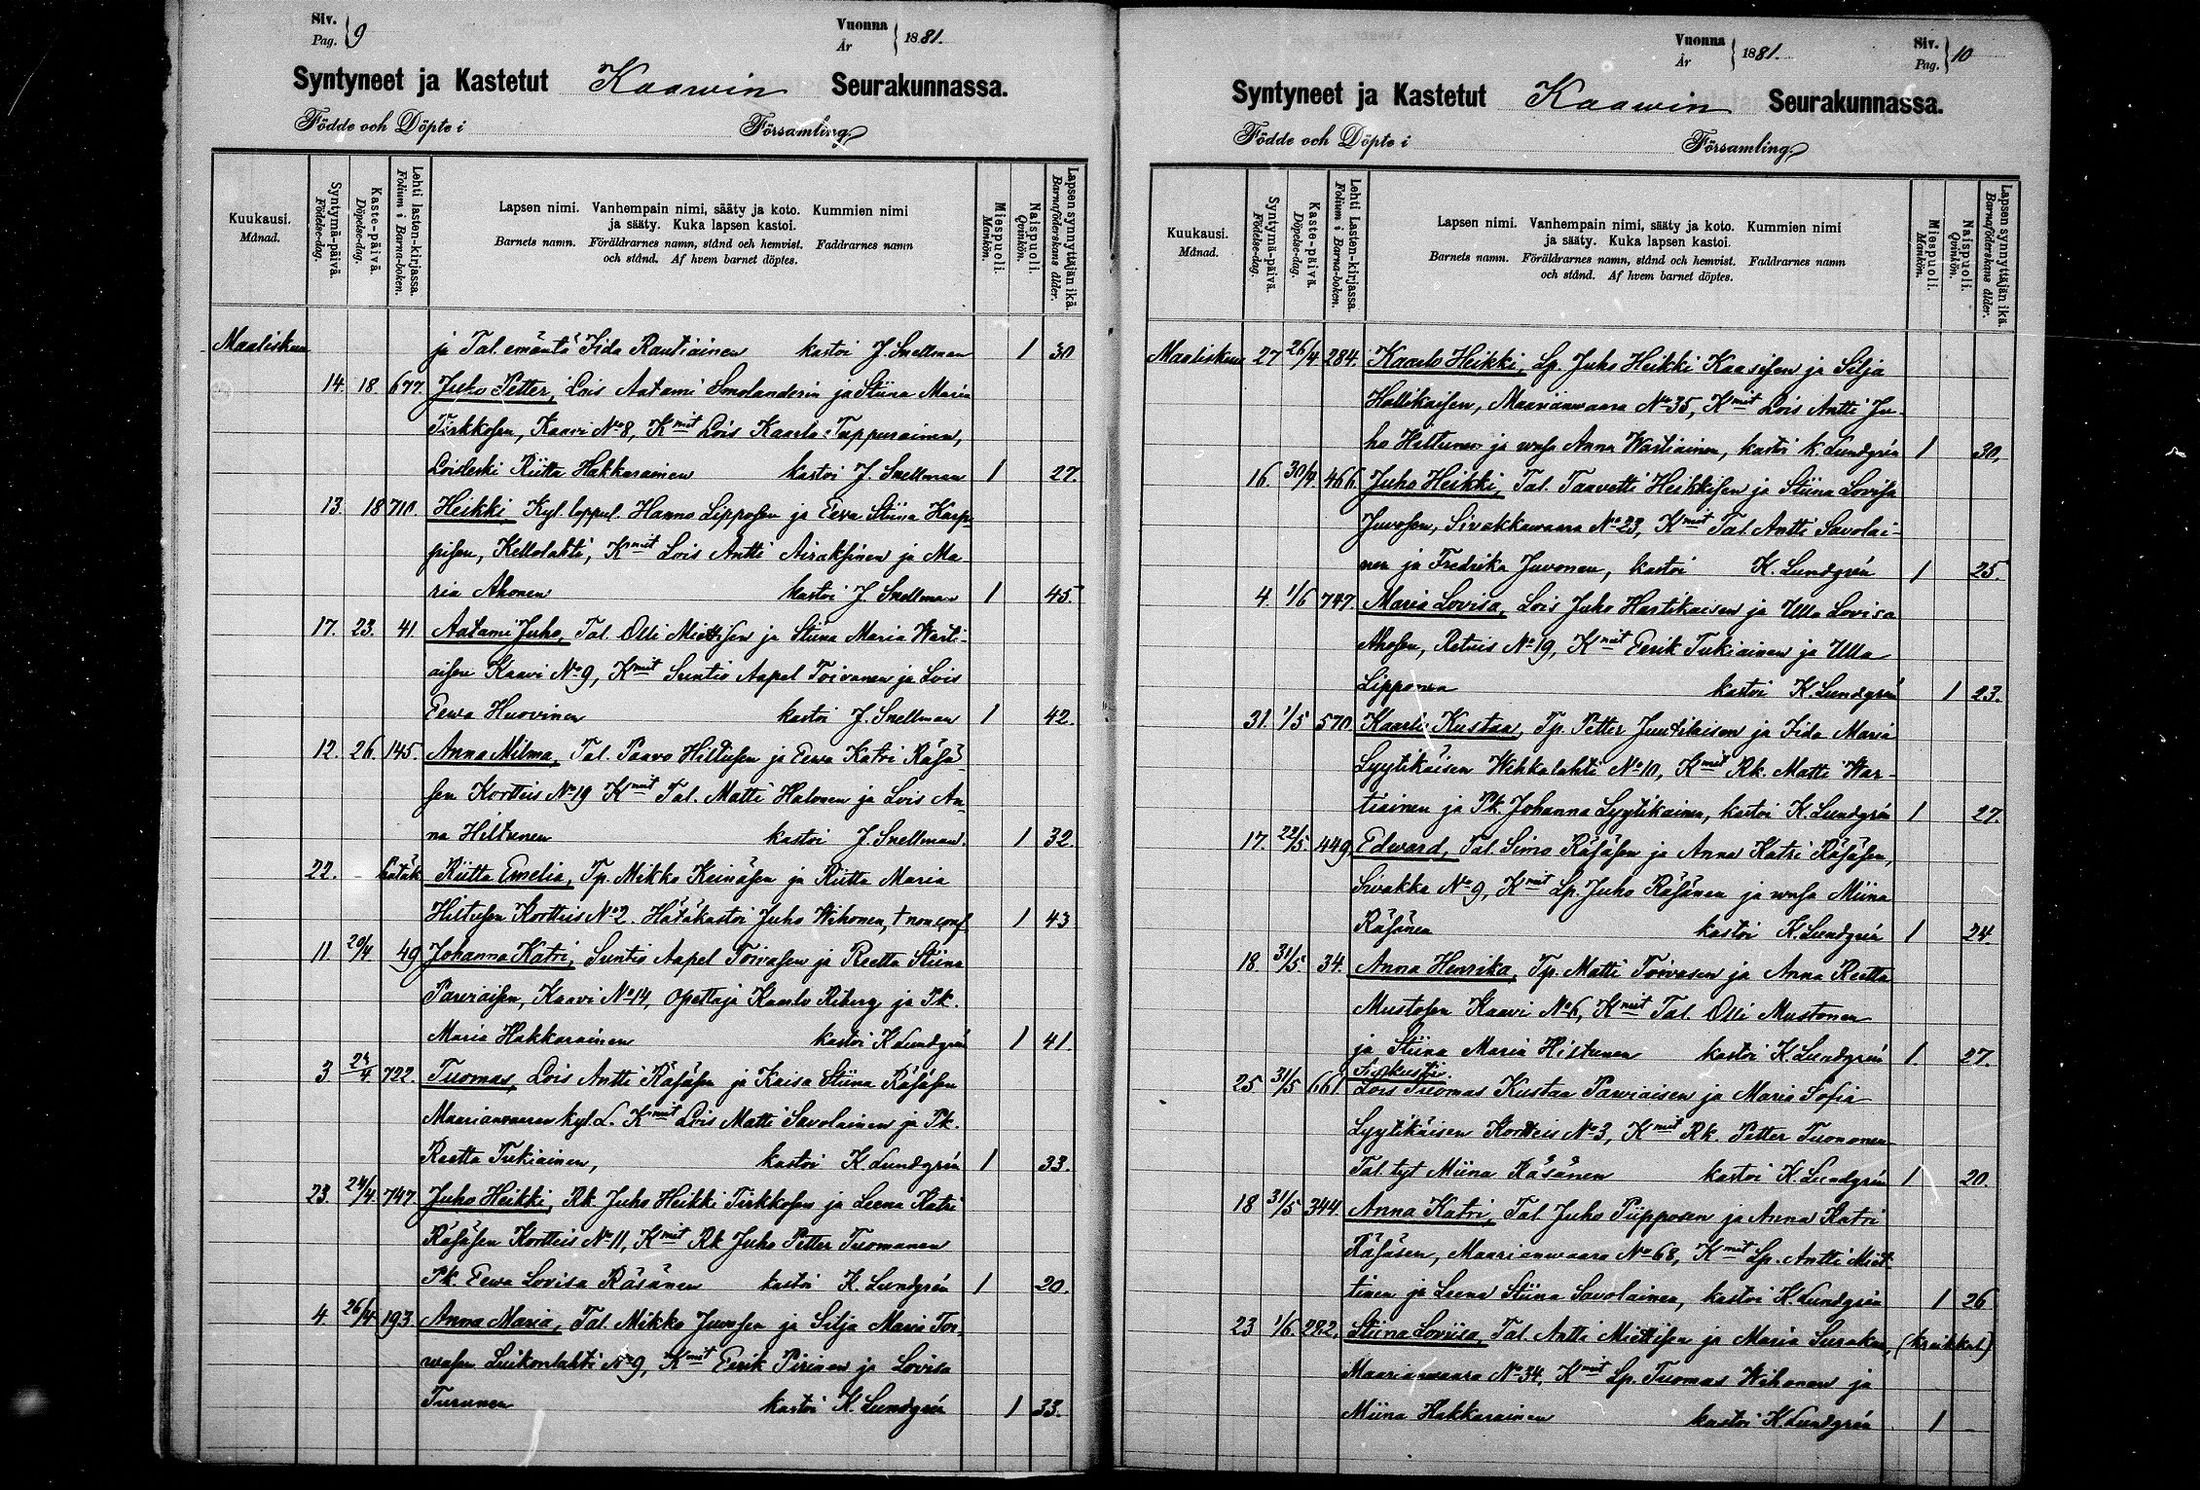 Siv. Pag. 9
Vuonna År 1881.
Syntyneet ja Kastetut Kaawin Seurakunnassa.
Födde och Döpte i Församling
Kuukausi. Månad.
Syntymä-päivä. Födelse-dag.
Kaste-päivä. Döpelse-dag.
Lehti lasten-kirjassa. Folium i Barna-boken.
Lapsen nimi. Vanhempain nimi, sääty ja koto. Kummien nimi
ja sääty. Kuka lapsen kastoi.
Barnets namn. Föräldrarnes namn, stånd och hemvist. Faddrarnes namn
och stånd. Af hvem barnet döptes.
Miespuoli. Mankön.
Naispuoli. Qvinkön.
Lapsen synnyttäjän ikä. Barnaföderskans ålder.
Maaliskuu ja Tal. emäntä Iida Rautiainen kastoi J. Snellman 1 30
14. 18 677. Juho Petter, Lois Aatami Smolanderin ja Stiina Maria
Tirkkosen, Kaavi No 8, Kmit Lois Kaarlo Tuppurainen,
Loisleski Riitta Hakkarainen kastoi J. Snellman 1 27.
13. 18 710. Heikki, Kyl. loppul. Hannu Lipposen ja Eeva Stiina Karp-
pisen, Kellolahti, Kmit Lois Antti Airaksinen ja Ma-
ria Ahonen kastoi J. Snellman 1 45.
17. 23. 41 Aatami Juho, Tal. Olli Miettisen ja Stiina Maria Warti-
aisen Kaavi No 9, Kmit Suntio Aapel Toivanen ja Lois
Eewa Huovinen kastoi J. Snellman 1 42.
12. 26. 145. Anna Milma, Tal. Paavo Hiltusen ja Eewa Katri Räsä-
sen Kortteis No 19 Kmit Tal. Matti Halonen ja Lois An-
na Hiltunen kastoi J. Snellman. 1 32.
22. hätäk Riitta Emelia, Tp. Mikko Keinäsen ja Riitta Maria
Hiltusen Kortteis No 2. Hätäkastoi Juho Wihonen, † non conf 1 43
11 20/4 49 Johanna Katri, Suntio Aapel Toivasen ja Reetta Stiina
Parviaisen, Kaavi No 14, opettaja Kaarlo Riberg ja Pk.
Maria Hakkarainen kastoi K Lundgrén 1 41.
3 24/4 722. Tuomas, Lois Antti Räsäsen ja Kaisa Stiina Räsäsen
Maarianwaaran kyl. L. Kmit Lois Matti Savolainen ja Pk.
Reetta Tukiainen, kastoi K Lundgrén 1 33.
23. 24/4. 747. Juho Heikki, Rk. Juho Heikki Tirkkosen ja Leena Katri
Räsäsen Kortteis No 11, Kmit Rk Juho Petter Tuomanen
Pk Eewa Lovisa Räsänen kastoi K. Lundgrén 1 20.
4. 26/4 193. Anna Maria, Tal. Mikko Juvosen ja Silja Maria Toi-
wasen Luikonlahti No 9, Kmit Eerik Pirinen ja Lovisa
Turunen kastoi K. Lundgrén 1 33.
Vuonna År 1881.
Siv. Pag. 10
Syntyneet ja Kastetut Kaawin Seurakunnassa.
Födde och Döpte i Församling
Kuukausi. Månad.
Syntymä-päivä. Födelse-dag.
Kaste-päivä. Döpelse-dag.
Lehti Lasten-kirjassa. Folium i Barna-boken.
Lapsen nimi. Vanhempain nimi, sääty ja koto. Kummien nimi
ja sääty. Kuka lapsen kastoi.
Barnets namn. Föräldrarnes namn, stånd och hemvist. Faddrarnes namn
och stånd. Af hvem barnet döptes.
Miespuoli. Mankön.
Naispuoli. Qvinkön.
Lapsen synnyttäjän ikä. Barnaföderskans ålder.
Maaliskuu 27 26/4 284. Kaarlo Heikki, Lp. Juho Heikki Kaasisen ja Silja
Hallikaisen, Maarianwaara No 35, Kmit Lois Antti Ju-
ho Hiltunen ja waFa Anna Wartiainen, kastoi K. Lundgrén 1 30.
16. 30/4. 466. Juho Heikki, Tal. Taavetti Heikkisen ja Stiina Lovisa
Juvosen, Sivakkawaara No 23, Kmit Tal. Antti Savolai-
nen ja Fredrika Juvonen, kastoi K. Lundgrén 1 25.
4. 1/6 747. Maria Lovisa, Lois Juho Hartikaisen ja Ulla Lovisa
Ahosen, Retuis No 19, Kmit Eerik Tukiainen ja Ulla
Lipponen kastoi K. Lundgrén 1 23.
31. 1/5 570. Kaarlo Kustaa, Tp. Petter Juutilaisen ja Iida Maria
Lyytikäisen Wehkalahti No 10, Kmit Rk. Matti War-
tiainen ja Pk. Johanna Lyytikäinen, kastoi K. Lundgrén 1 27.
17. 22/5 449. Edward, Tal. Simo Räsäsen ja Anna Katri Räsäsen,
Sivakka No 9, Kmit Lp. Juho Räsänen ja waFa Miina
Räsänen kastoi K. Lundgrén 1 24.
18 31/5. 34. Anna Henrika, Tp. Matti Toivasen ja Anna Reetta
Mustosen Kaavi No 6, Kmit Tal. Olli Mustonen
ja Stiina Maria Hiltunen kastoi K Lundgrén 1. 27.
25. 31/5 661 Lois Tuomas Kustaa Parviaisen ja Maria Sofia
Lyytikäisen Kortteis No 3, Kmit Rk. Petter Tuononen
Tal. tyt Miina Räsänen kastoi K. Lundgrén 1 20.
18 31/5 344. Anna Katri, Tal. Juho Piipposen ja Anna Katri
Räsäsen, Maarianwaara No 68, Kmit Lp. Antti Miet-
tinen ja Leena Stiina Savolainen, kastoi K. Lundgrén 1 26
23 1/6. 292. Stiina Loviisa, Tal. Antti Miettisen ja Maria Surakan,
Maarianwaara No 34, Kmit Lp. Tuomas Wihonen ja
Miina Hakkarainen kastoi K. Lundgrén 1 -